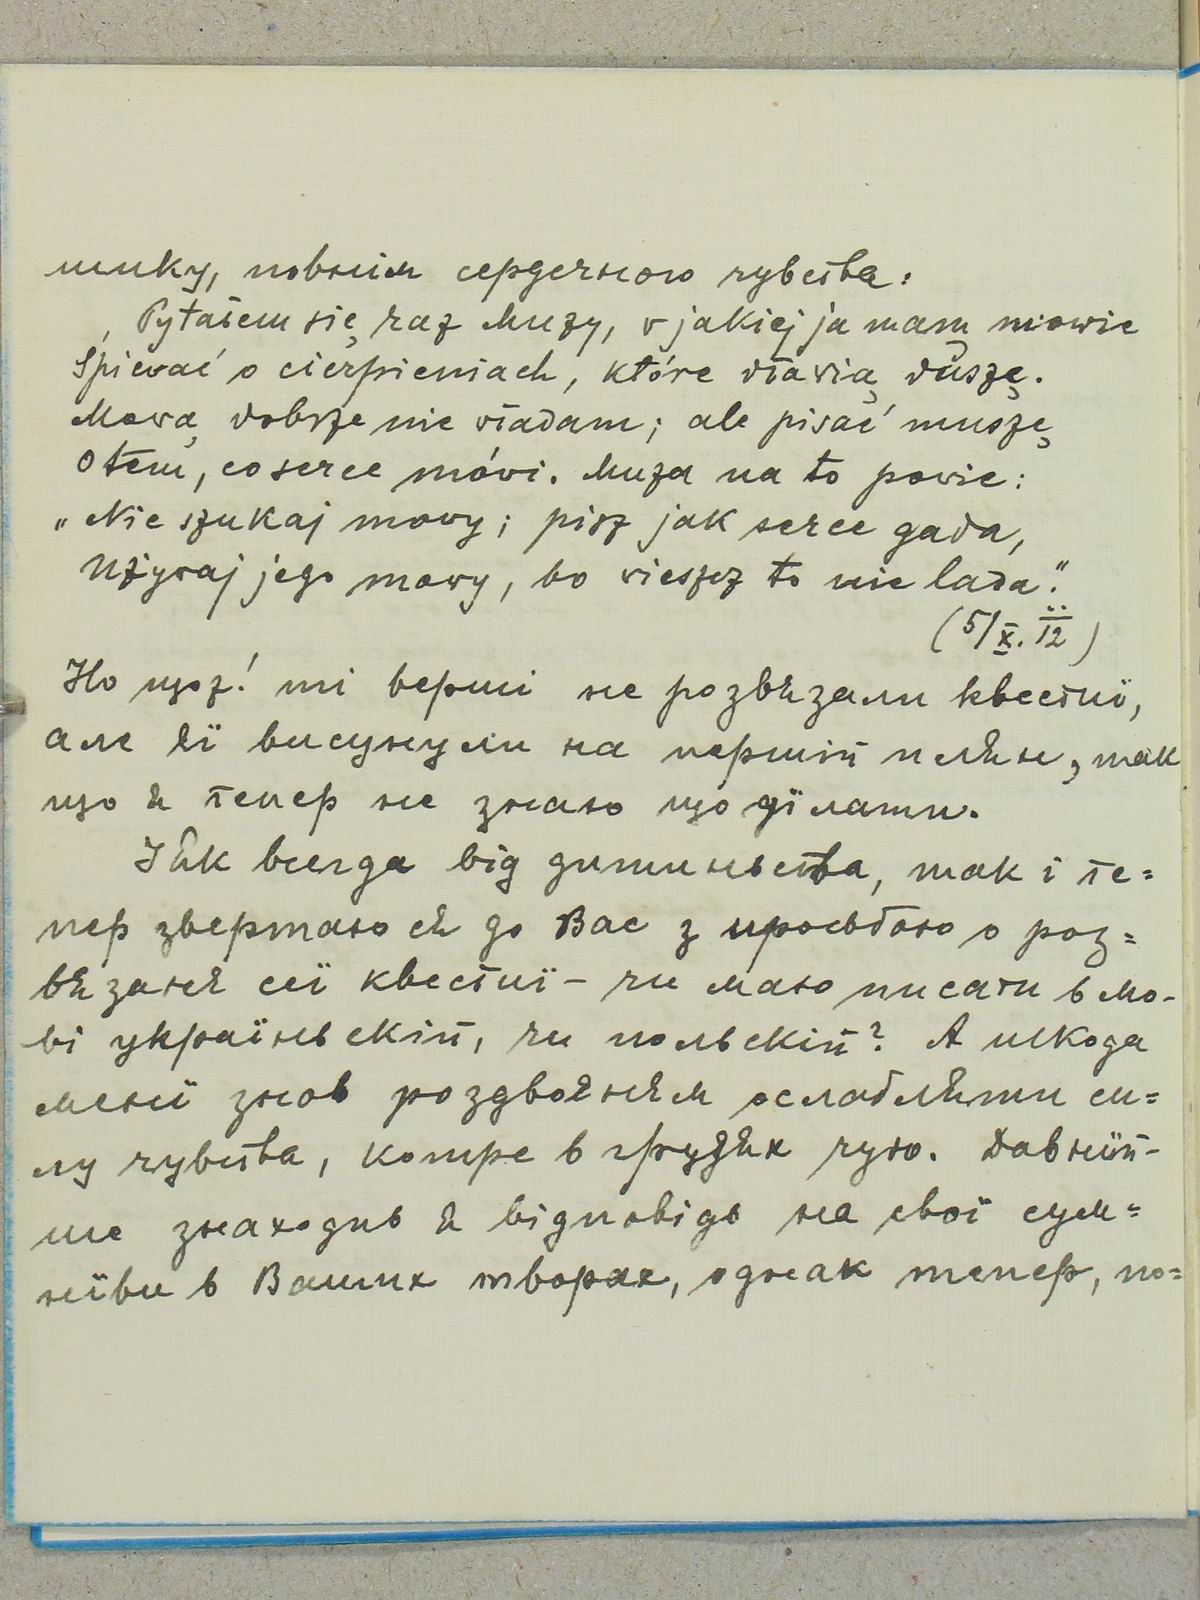 шику, повним сердечного чувства:
"Pytałem się raz Muzy, v jakiej ja mam mowie
Śpievać o cierpieniach, które dłavią duszę.
Mową dobrze nie vładam; ale pisać muszę
O tem, co serce móvi. Muza na to powie:
„Nie szukaj movy; pisz jak serce gada,
Używaj jego movy, bo vieszcz to nie lada".
(5/X. 12)
Но щож! ті верші не розвязали квестиї,
але єї висунули на перший плян, так
що я тепер не знаю що дїлати.
Як всегда від дитиньства, так і те=
пер звертаю ся до Вас з просьбою о роз=
вязанє сеї квестиї – чи маю писати в мо-
ві україньскій, чи польскій? А шкода
менї знов роздвоєнєм ослабляти си=
лу чувства, котре в грудях чую. Давнїй-
ше знаходив я відповідь на свої сум=
нїви в Ваших творах, однак тепер, по=